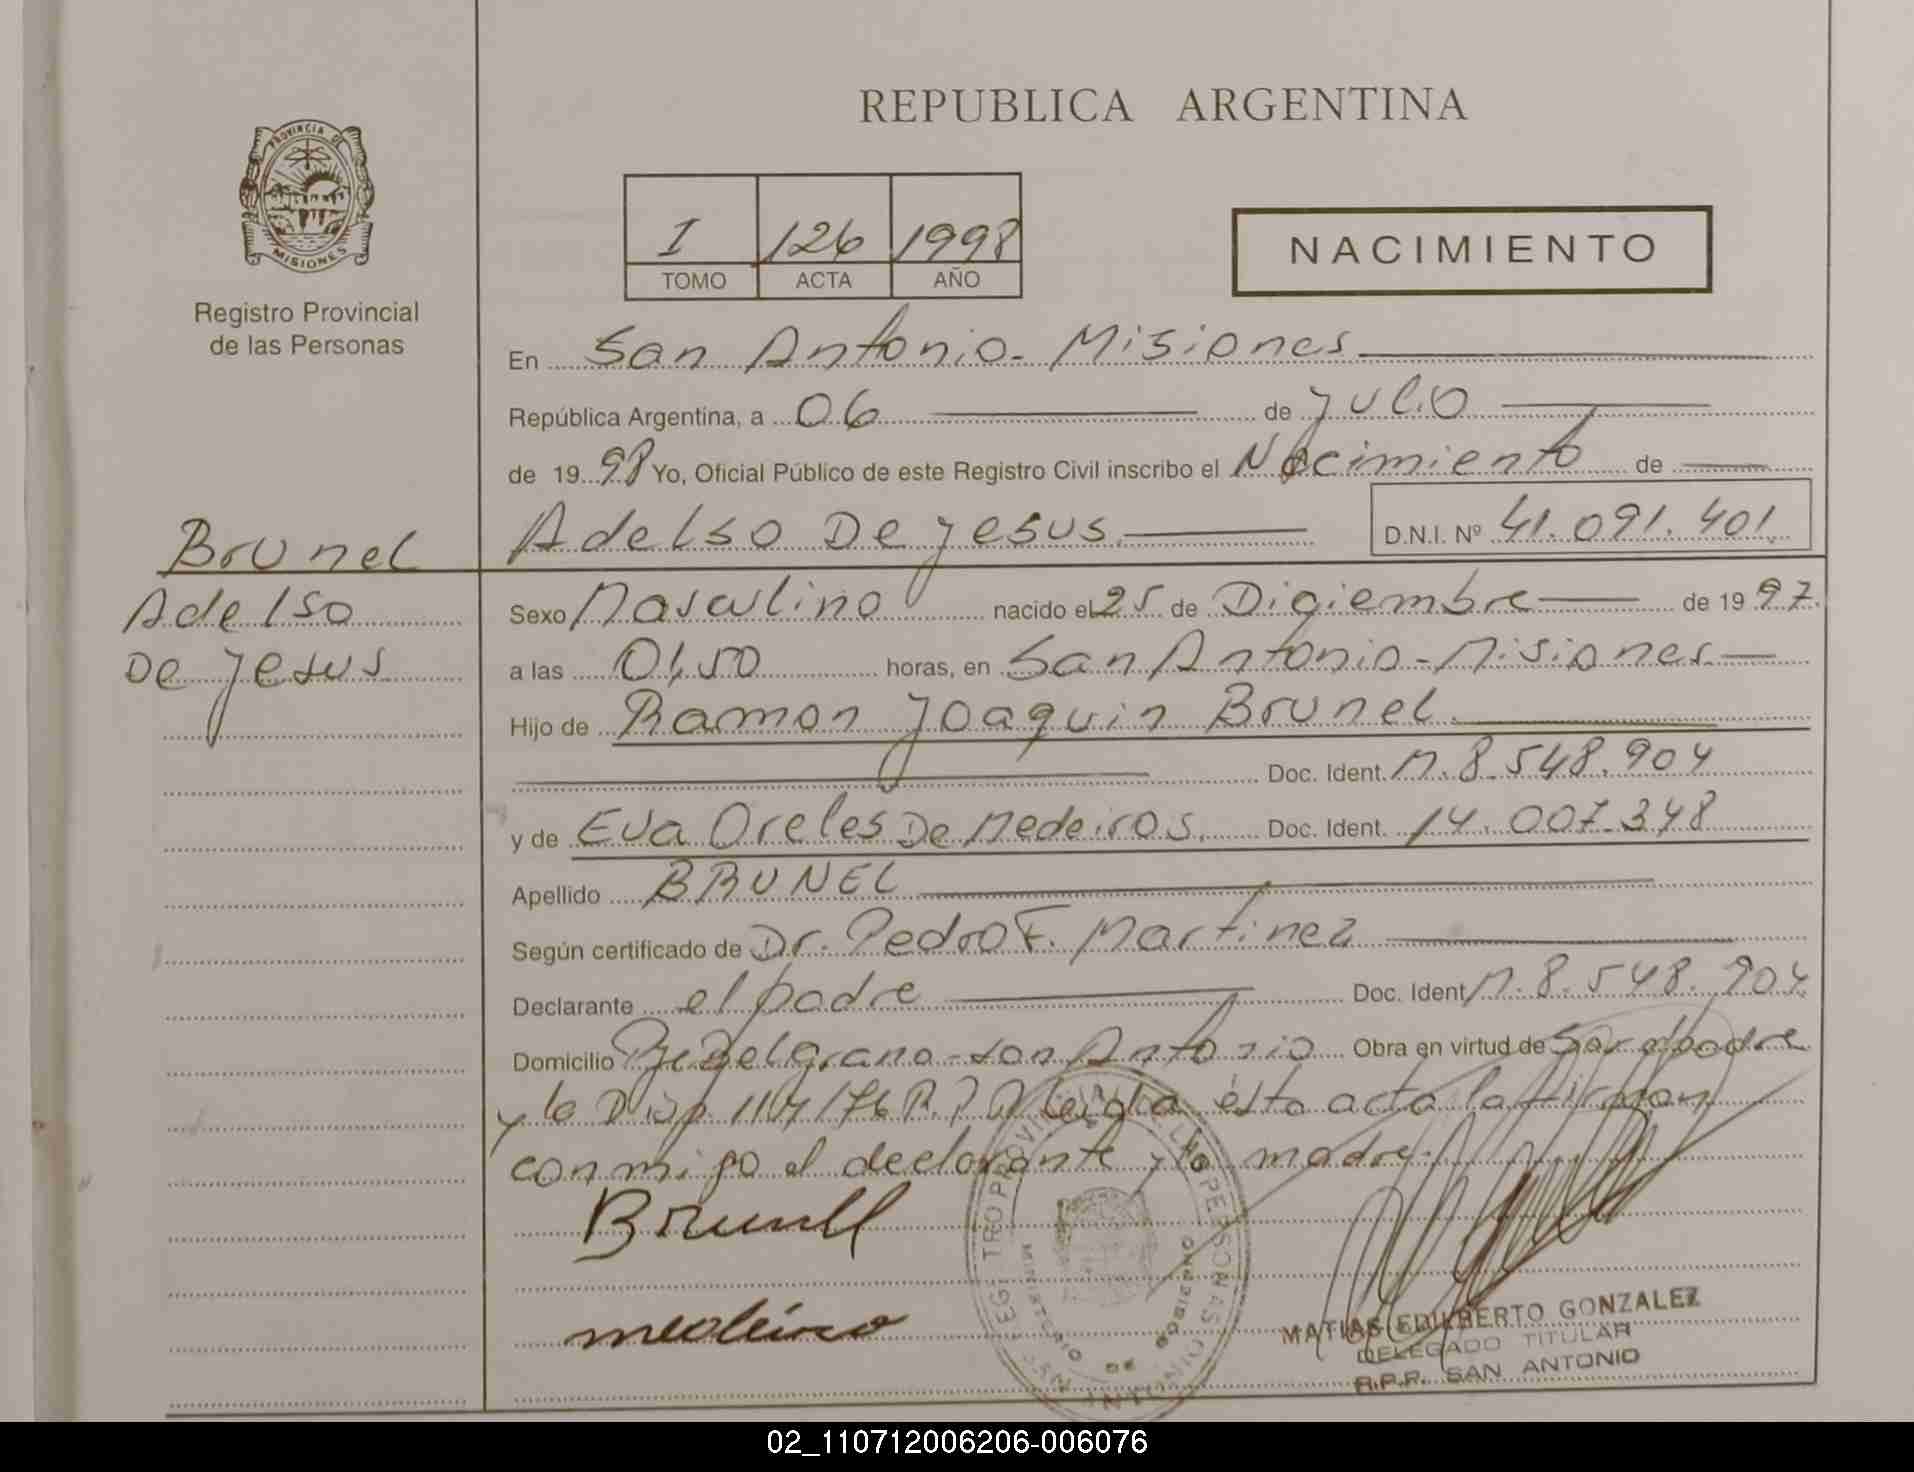 REPUBLICA ARGENTINA
PROVINCIA DE
MISIONES
Registro Provincial
de las Personas
I 126 1998
TOMO ACTA AÑO
NACIMIENTO
En San Antonio - Misiones
República Argentina, a 06 de Julio
de 19 98 Yo, Oficial Público de este Registro Civil inscribo el Nacimiento de
Adelso De Jesus
D.N.I. Nº 41.091.401
Brunel
Adelso
De Jesus
Sexo Masculino nacido el 25 de Digiembre de 19 97.
a las 01,50 horas, en San Antonio - Misiones
Hijo de Ramon Joaquin Brunel
Doc. Ident. M. 8.548.904
y de Eva Oreles De Medeiros. Doc. Ident. 14.007.348
Apellido BRUNEL
Según certificado de Dr. Pedro F. Martinez
Declarante el padre Doc. Ident M. 8.548.904
Domicilio Belgrano - San Antonio Obra en virtud de Ser padre
y la Disp 114/76 R.P. Leida ésta acta la firman
conmigo el declarante y la madre.
Brunell
medeiro
MATIAS EDILBERTO GONZALEZ
DELEGADO TITULAR
R.P.P. SAN ANTONIO
02_110712006206-006076